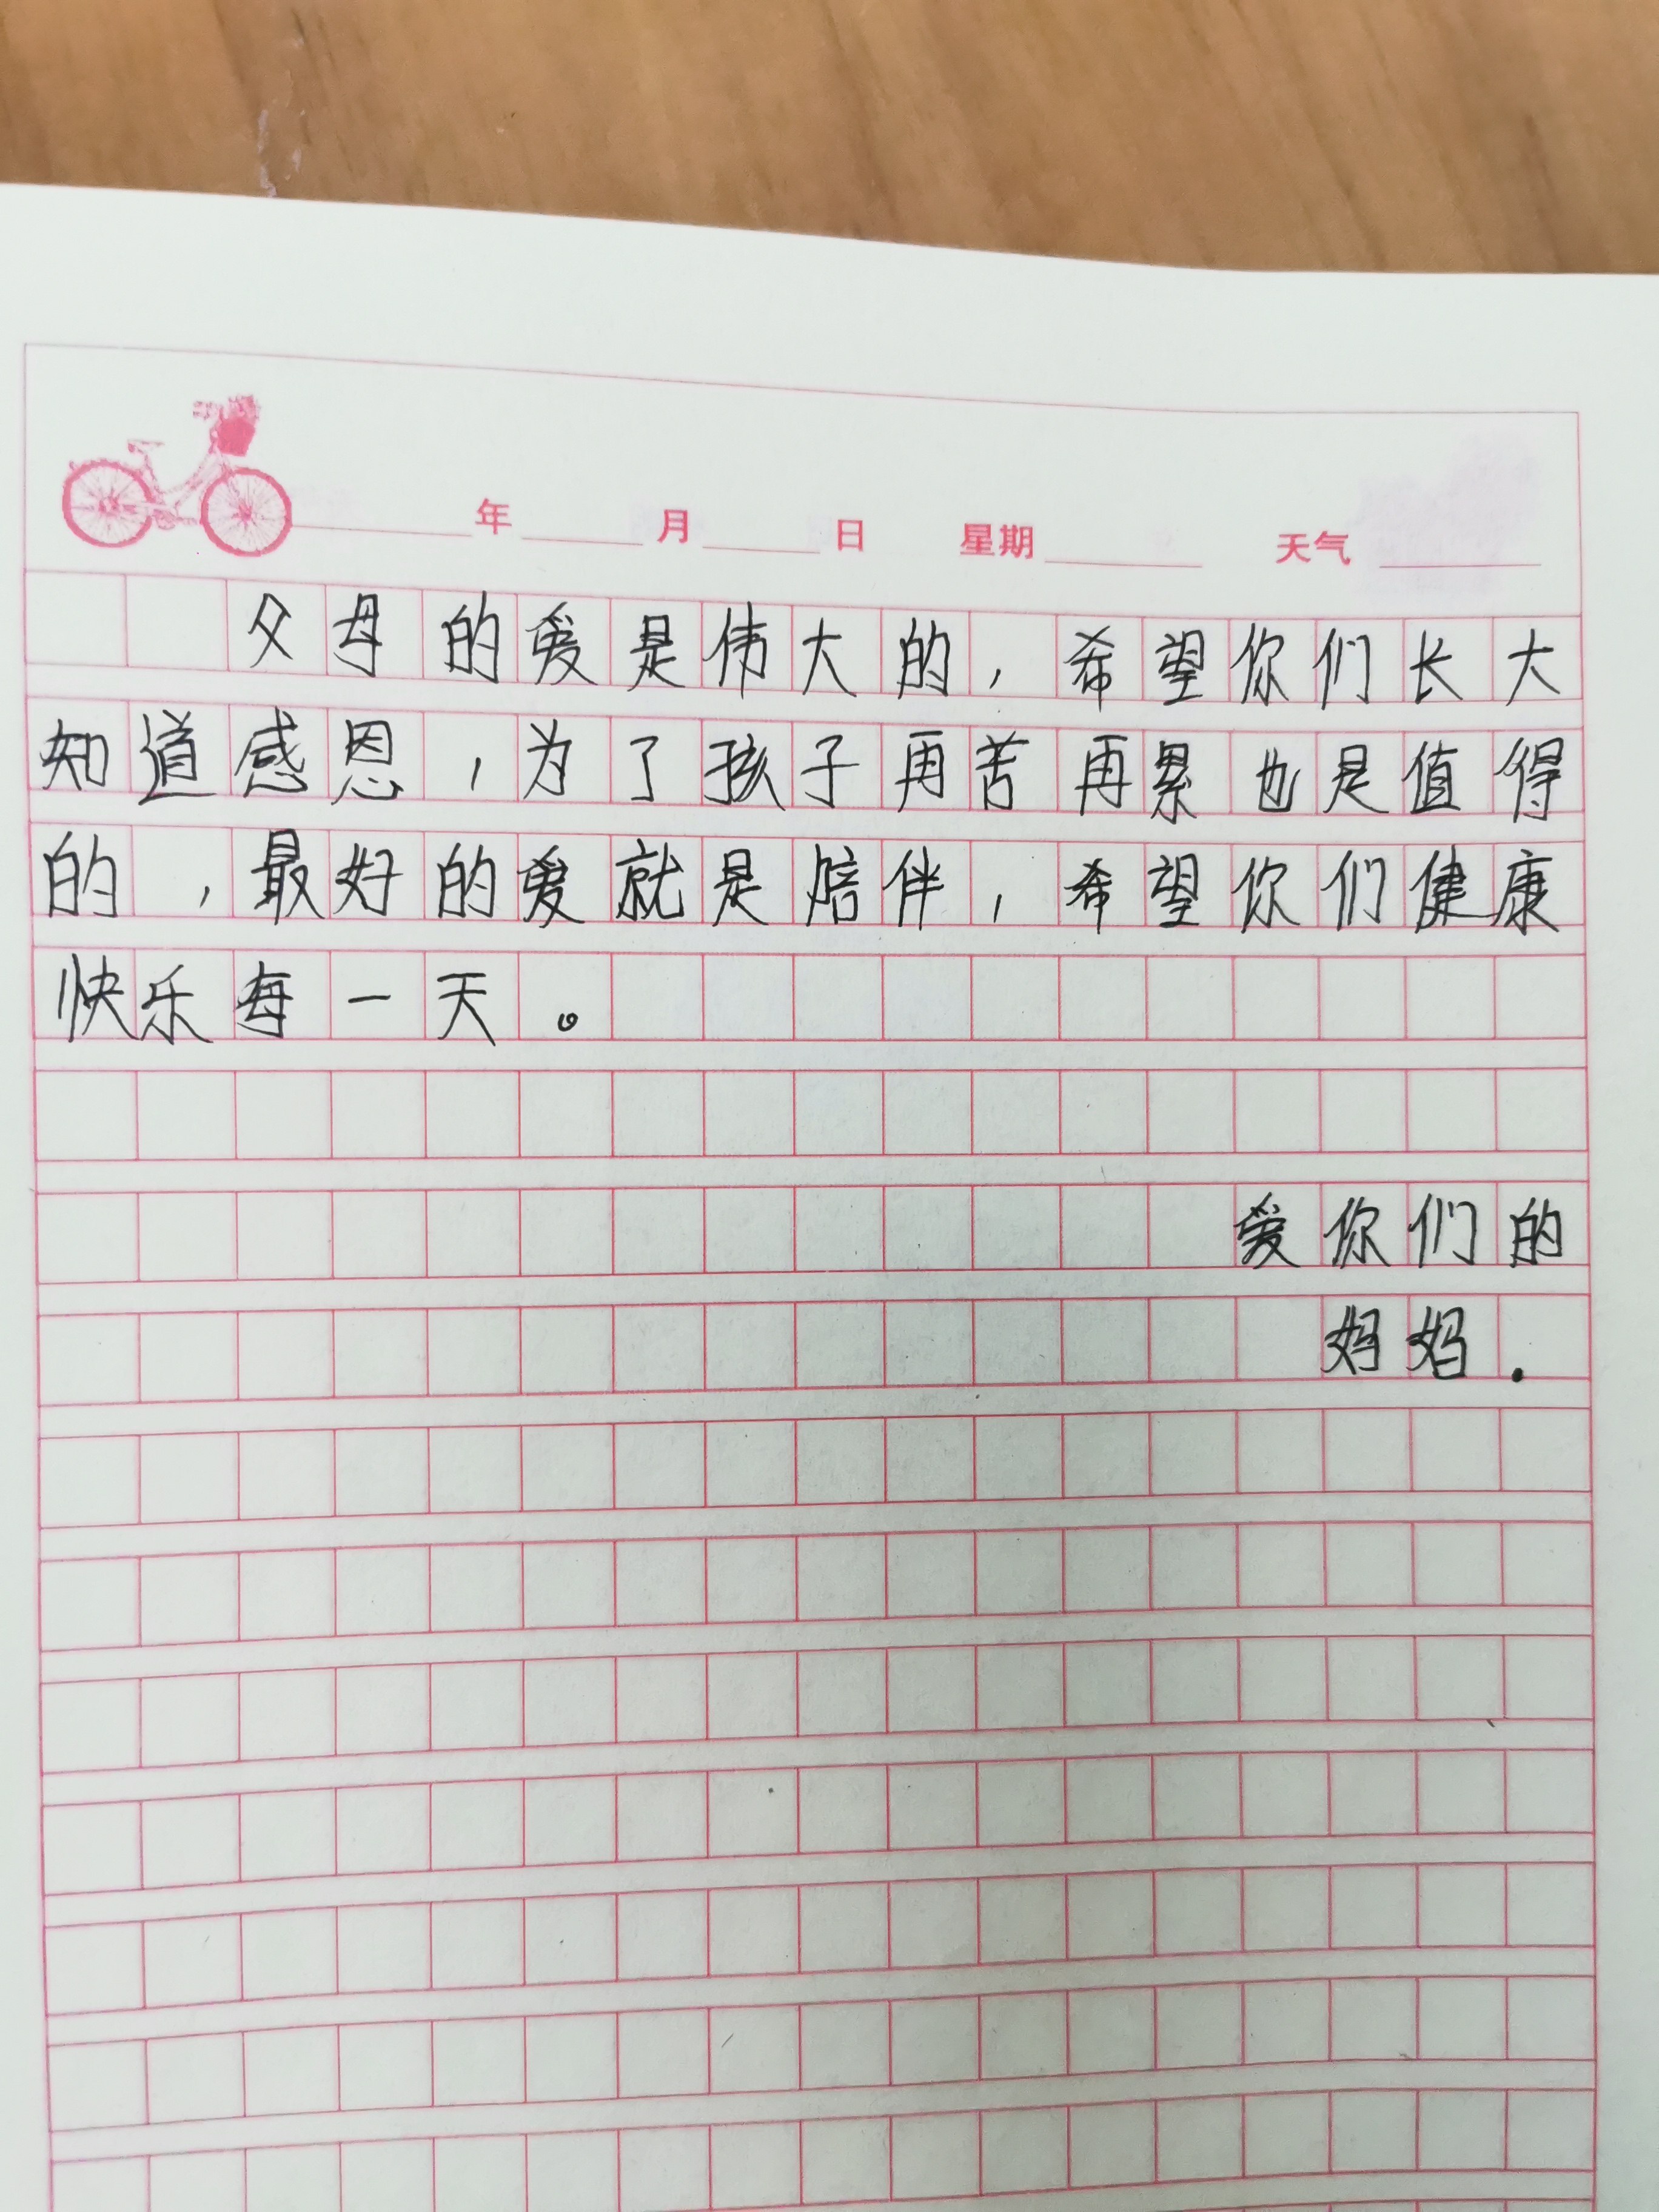 年 月 日 星期 天气
父母的爱是伟大的，希望你们长大
知道感恩，为了孩子再苦再累也是值得
的，最好的爱就是陪伴，希望你们健康
快乐每一天。
爱你们的
妈妈.